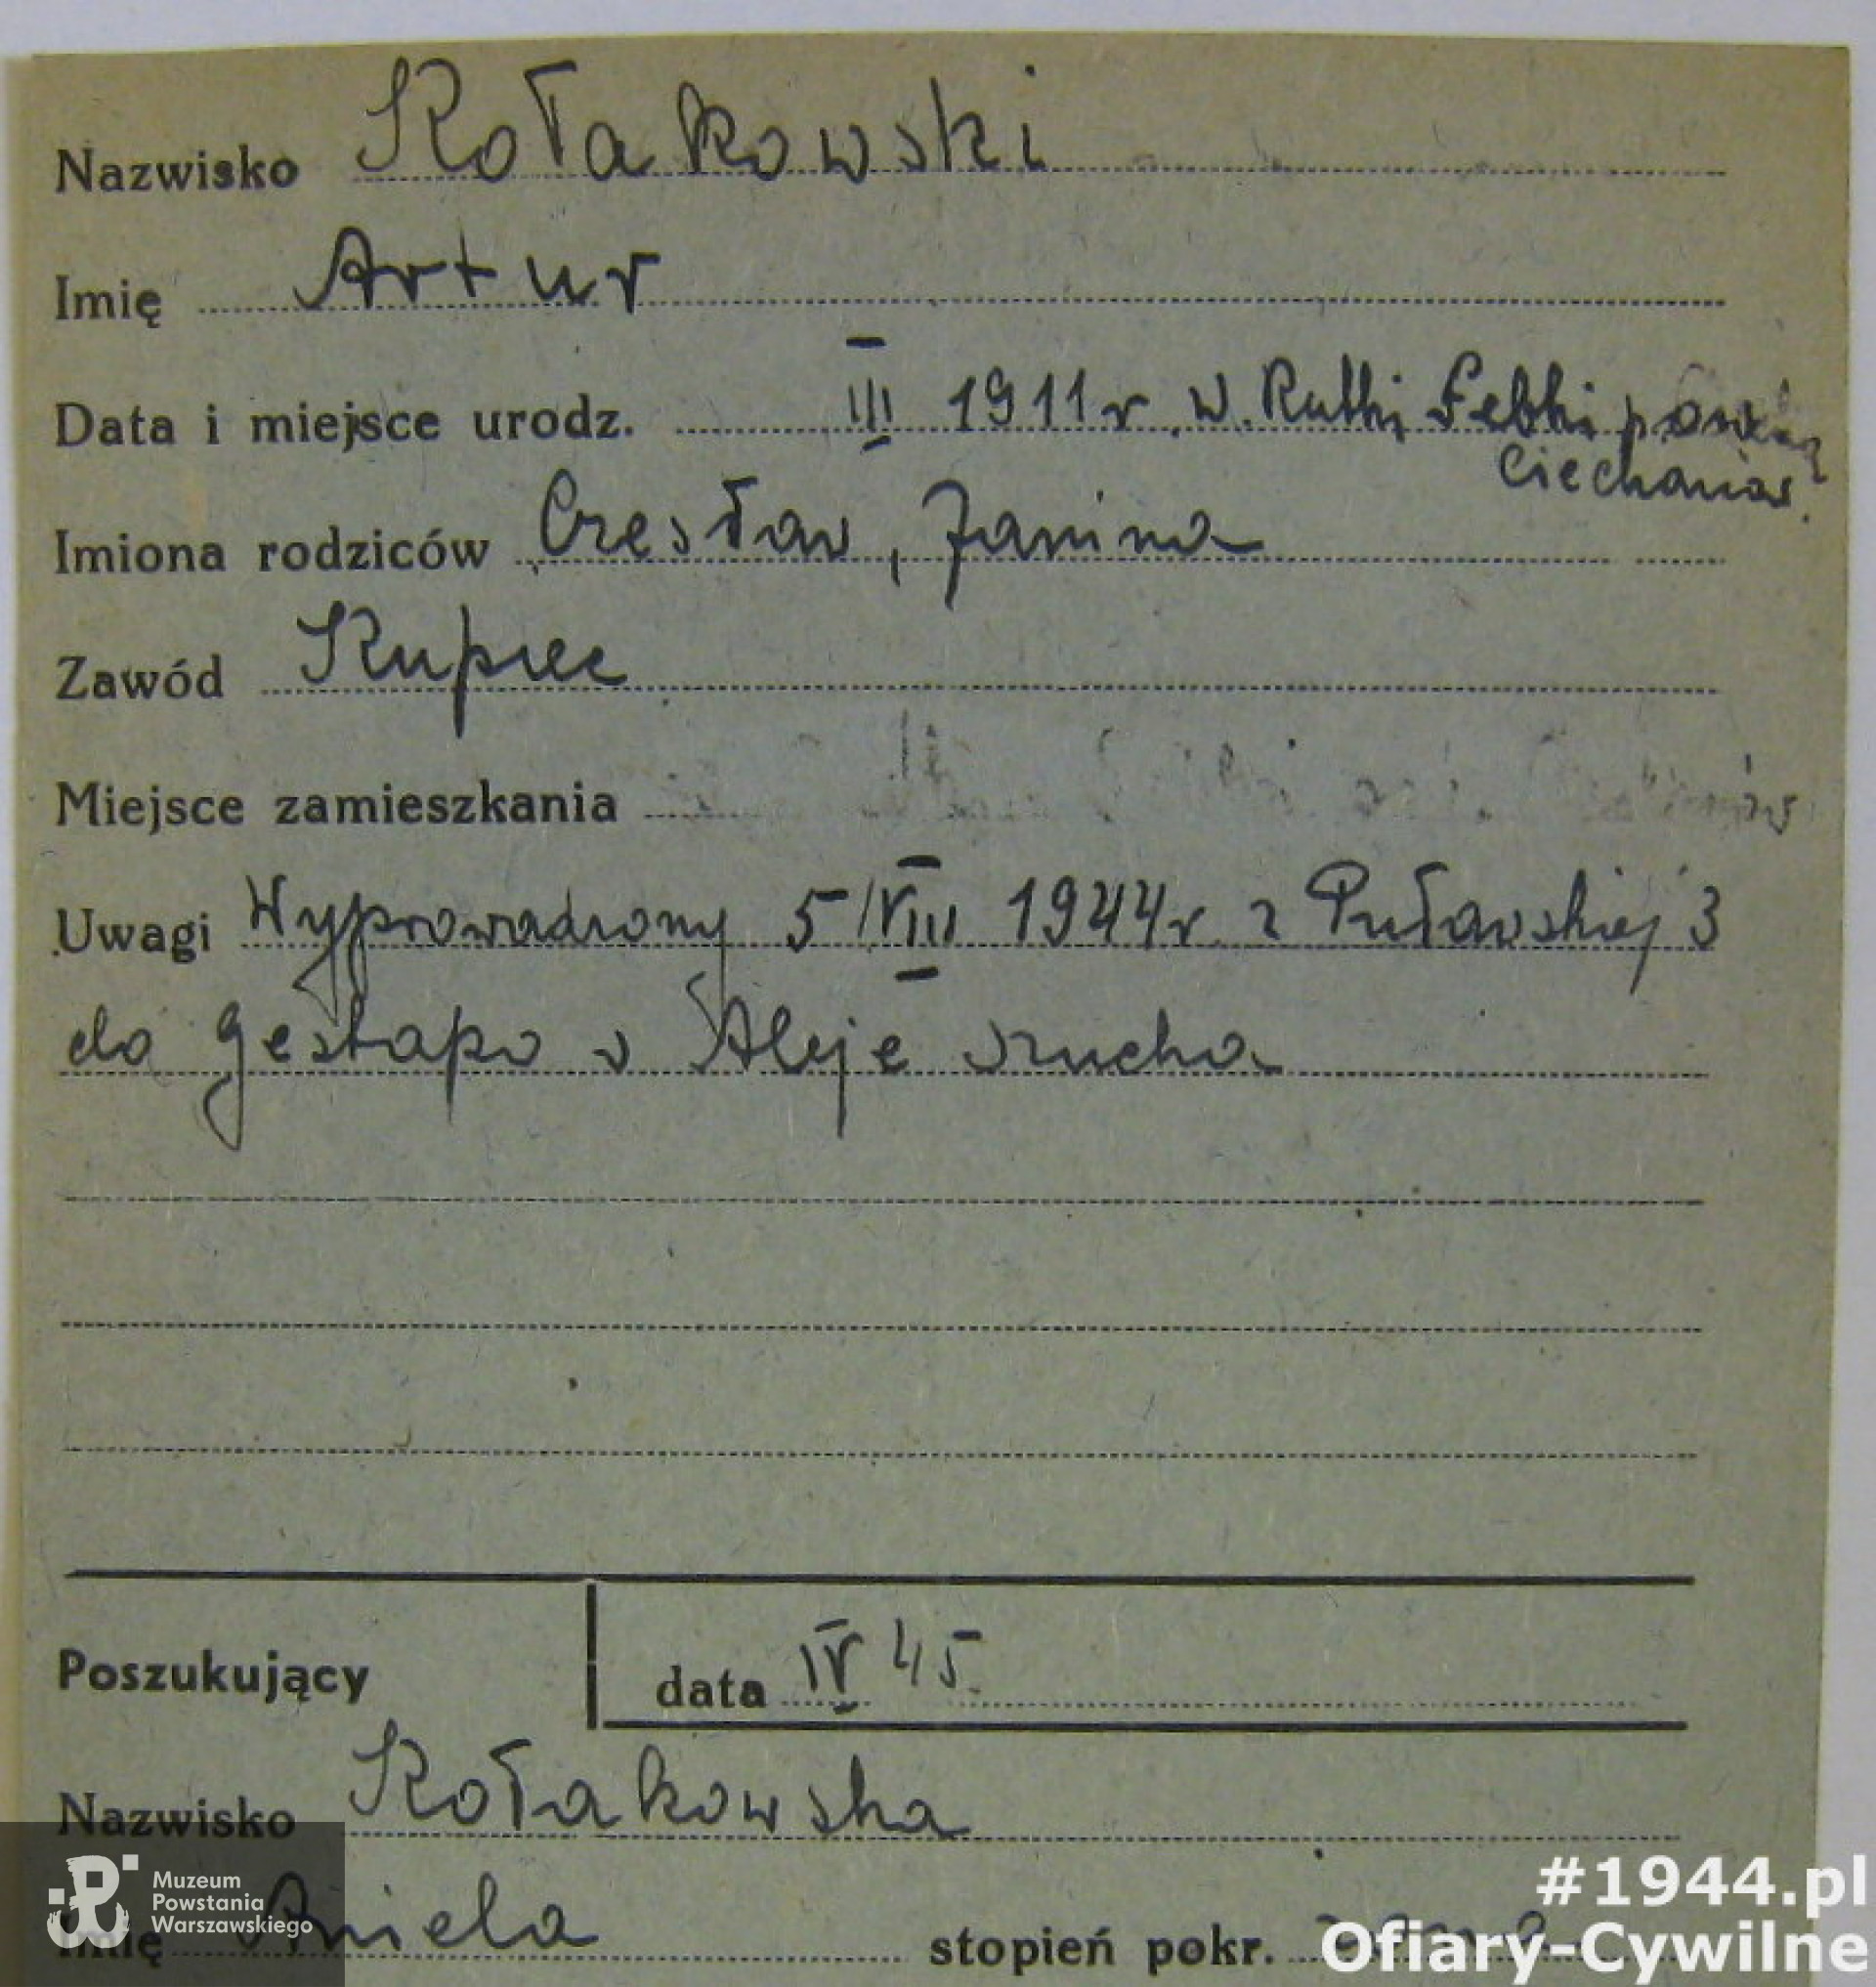 Nazwisko Kołakowski
Imię Artur
Data i miejsce urodz. III 1911 r. w. Rutki
Ciechanów.
Imiona rodziców Czesław, Janina
Zawód Kupiec
Miejsce zamieszkania
Uwagi Wyprowadzony 5/VIII 1944 r z Puławskiej 3
do gestapo w Aleje Szucha
Poszukujący data IV 45.
Nazwisko Kołakowska
Imię Aniela stopień pokr.
Muzeum
Powstania
Warszawskiego
#1944.pl
Ofiary-Cywilne